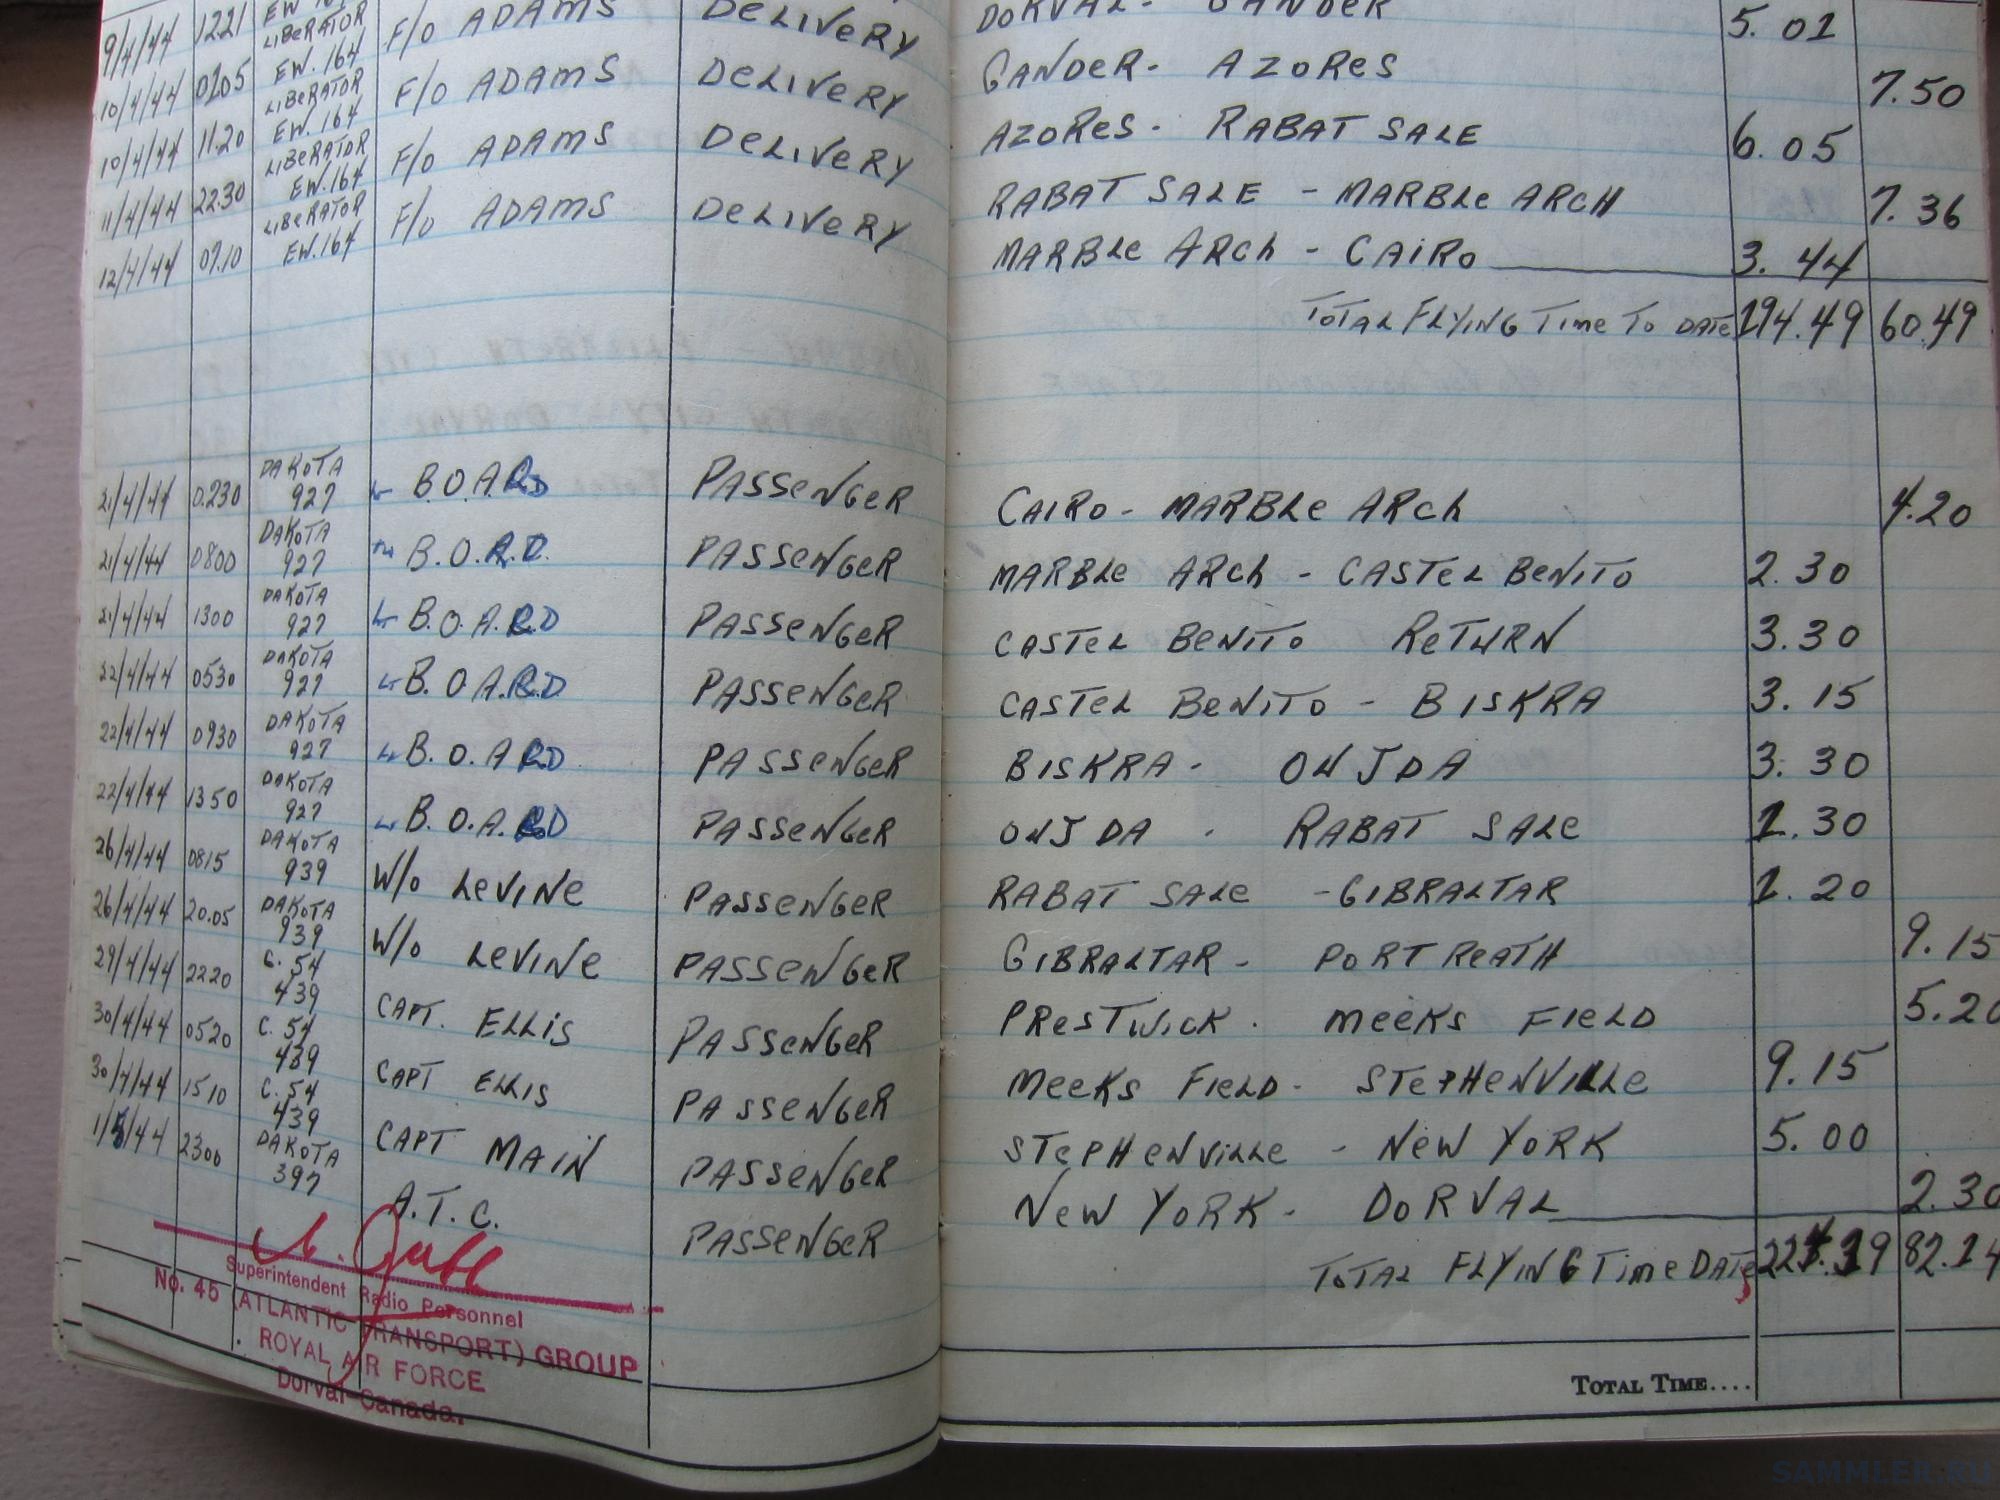 9/4/44 1221 LIBERATOR EW.164 F/O ADAMS DELIVERY DORVAL - GANDER 5.01
10/4/44 0105 LIBERATOR EW.164 F/O ADAMS DELIVERY GANDER - AZORES 7.50
10/4/44 11.20 LIBERATOR EW.164 F/O ADAMS DELIVERY AZORES - RABAT SALE 6.05
11/4/44 22.30 LIBERATOR EW.164 F/O ADAMS DELIVERY RABAT SALE - MARBLE ARCH 7.36
12/4/44 07.10 MARBLE ARCH - CAIRO 3.44
TOTAL FLYING TIME TO DATE 194.49 60.49
21/4/44 0230 DAKOTA 927 B.O.A. PASSENGER CAIRO - MARBLE ARCH 4.20
21/4/44 0800 DAKOTA 927 B.O. PASSENGER MARBLE ARCH - CASTEL BENITO 2.30
21/4/44 1300 DAKOTA 927 B.O.A. PASSENGER CASTEL BENITO RETURN 3.30
22/4/44 0530 DAKOTA 927 B.O.A. PASSENGER CASTEL BENITO - BISKRA 3.15
22/4/44 0930 DAKOTA 927 B.O.A. PASSENGER BISKRA - OUJDA 3.30
22/4/44 1350 DAKOTA 927 B.O.A. PASSENGER OUJDA - RABAT SALE 1.30
26/4/44 0815 DAKOTA 939 W/O LEVINE PASSENGER RABAT SALE - GIBRALTAR 1.20
26/4/44 20.05 DAKOTA 939 W/O LEVINE PASSENGER GIBRALTAR - PORT REATH 9.15
29/4/44 2220 C.54 439 CAPT. ELLIS PASSENGER PRESTWICK - MEEKS FIELD 5.20
30/4/44 0520 C.54 439 CAPT ELLIS PASSENGER MEEKS FIELD - STEPHENVILLE 9.15
30/4/44 1510 C.54 439 CAPT MAIN PASSENGER STEPHENVILLE - NEW YORK 5.00
1/5/44 2300 DAKOTA 397 A.T.C. PASSENGER NEW YORK - DORVAL 2.30
TOTAL FLYING TIME DATE 82.14
Superintendent Radio Personnel
No. 45 (ATLANTIC TRANSPORT) GROUP
ROYAL AIR FORCE
Dorval Canada.
TOTAL TIME....
SAMMLER.RU